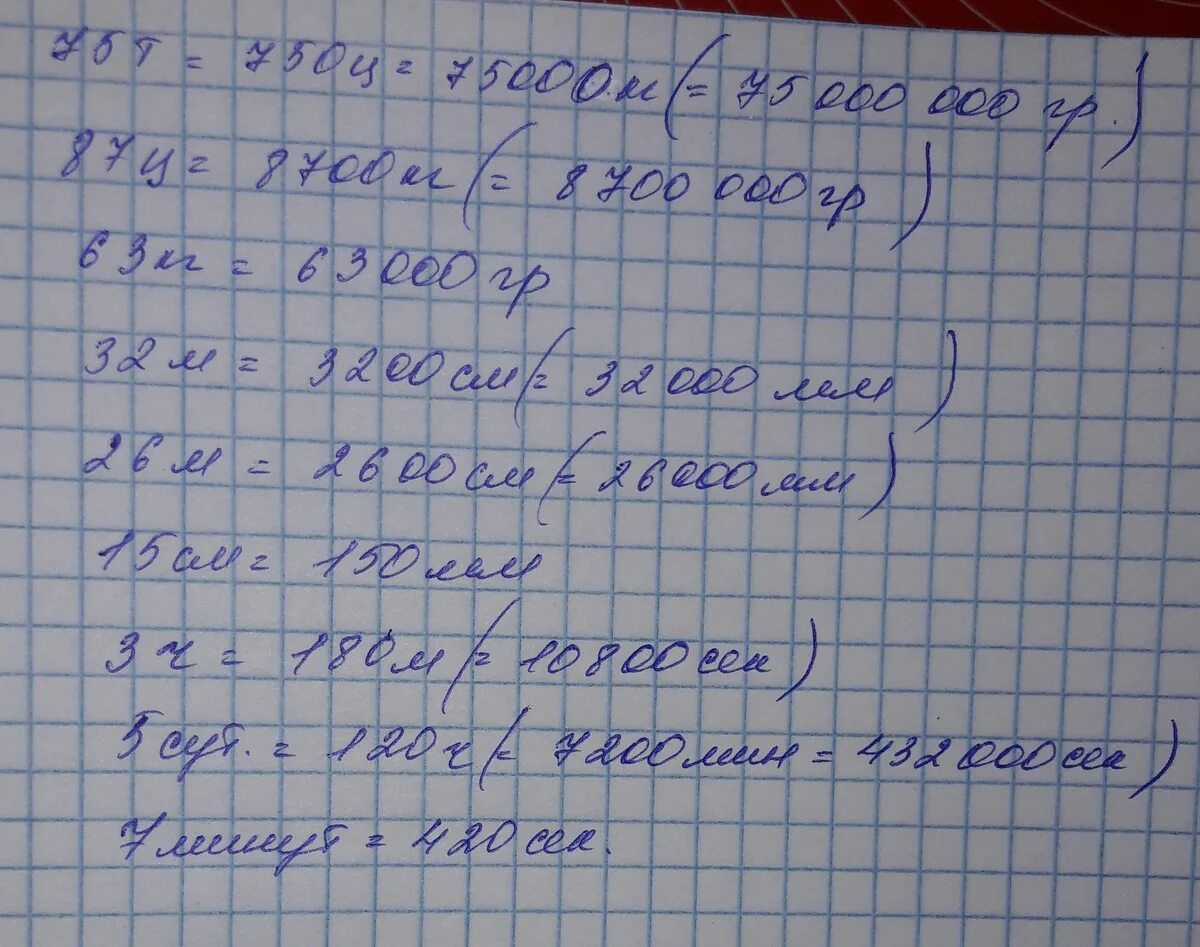 75т = 750ц = 75000кг (= 75 000 000 гр.)
87ц = 8700кг (= 8 700 000 гр)
63кг = 63 000 гр
32 м = 3200 см (= 32 000 мм)
26 м = 2600 см (= 26000 мм)
15 см = 150 мм
3 ч = 180 м (= 10800 сек)
5 сут. = 120 ч (= 7200 мин = 432 000 сек)
7 минут = 420 сек.